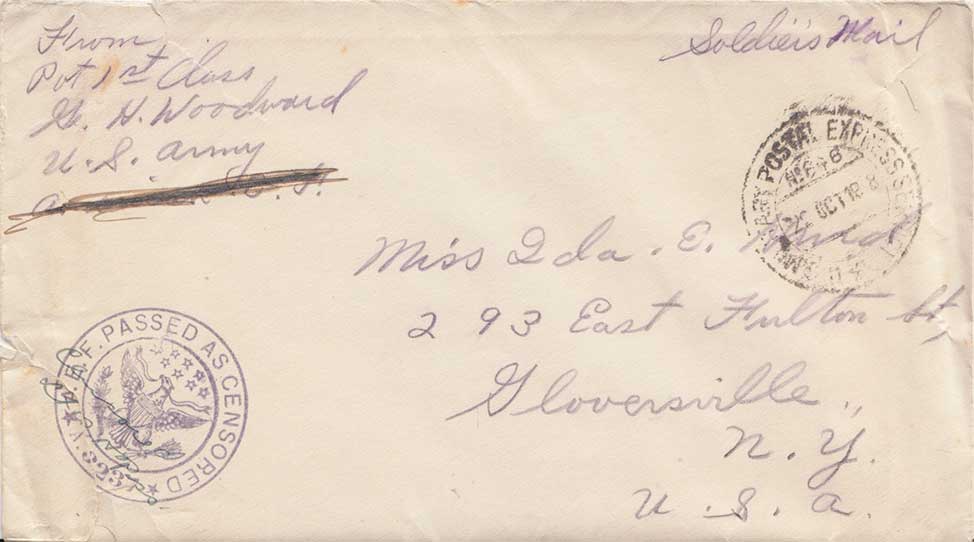 From
Pvt 1st Class
G. H. Woodward
U.S. Army
Soldier's Mail
POSTAL EXPRESS
No 646
OCT 18
Miss Ida. E.
293 East Fulton St,
Gloversville,,
N.Y.
U.S.A.
A.E.F. PASSED AS CENSORED